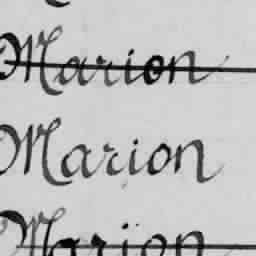 Marion
Marion
Marion